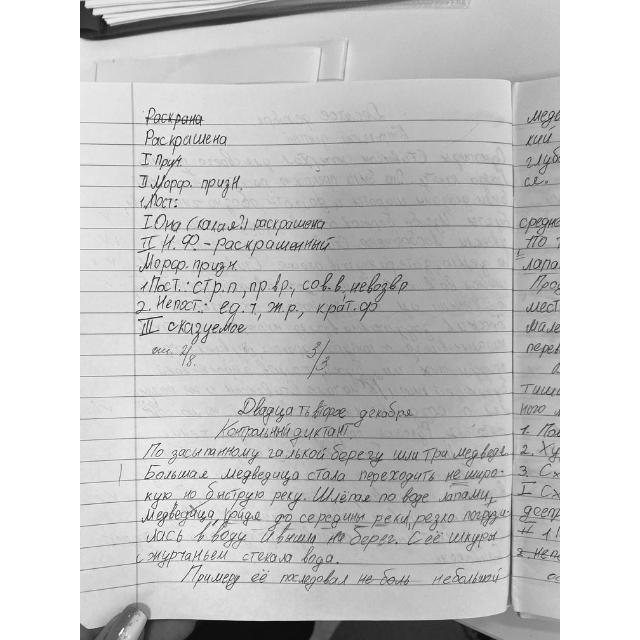 Раскрана
Раскрашена
I Прич.
II Морф. призн.
1 Пост:
I Она (какая?) раскрашена
II Н.Ф. - раскрашенный
Морф. призн.
1 Пост.: стр.п, пр.вр., сов.в, невозвр
2. Непост.: ед.ч, ж.р., крат.ф
III сказуемое
3/3
Двадцать второе декабря
Контрольный диктант.
По засыпанному галькой берегу шли три медведя.
Большая медведица стала переходить не широ-
кую но быструю реку. Шлёпая по воде лапами,
медведица, дойдя до середины реки, резко погрузи-
лась в воду и вышла на берег. С её шкуры
с журчаньем стекала вода.
Примеру её последовал не боль небольшой
медве
кий
глуб
ся.
средне
По т
лапа
Про
мест
мале
перев
тиши
ного
1. Пол
2. Ху
3. Сх
I Сх
деепр
II 1
2. непо